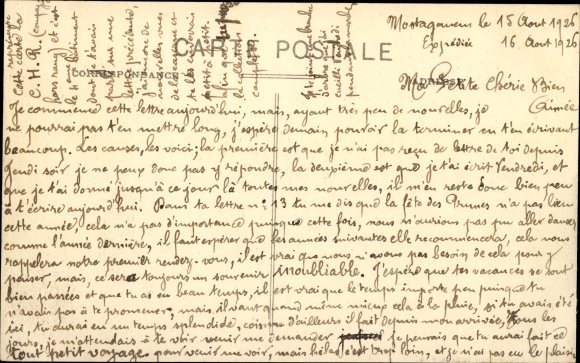 Montaganens le 15 Aout 1926
Expédiée 16 Aout 1926
CARTE POSTALE
CORRESPONDANCE
ADRESSE
Ma Petite Chérie Bien
Aimée
Je commence cette lettre aujourd'hui, mais, ayant très peu de nouvelles, je
ne pourrai pas t'en mettre long, j'espère demain pouvoir la terminer en t'en écrivant
beaucoup. Les causes, les voici; la première est que je n'ai pas reçu de lettre de toi depuis
Jeudi soir je ne peux donc pas y répondre, la deuxième est que je t'ai écrit Vendredi, et
que je t'ai donné jusqu'à ce jour là toutes mes nouvelles, il m'en reste donc bien peu
à t'écrire aujourd'hui. Dans ta lettre n° 13 tu me dis que la fête des Prunes n'a pas lieu
cette année, cela n'a pas d'importance puisque cette fois, nous n'aurions pas pu aller danser
comme l'année dernière, il faut espérer que les années suivantes elle recommencera, cela nous
rappellera notre premier rendez-vous, il est vrai que nous n'avons pas besoin de cela pour y
penser, mais, ce sera toujours un souvenir inoubliable. J'espère que tes vacances se sont
bien passées et que tu as eu beau temps, il est vrai que le temps importe peu puisque tu
n'avais pas à te promener, mais, il vaut quand même mieux cela à la pluie, si tu avais été
ici, tu aurais eu un temps splendide, comme d'ailleurs il fait depuis mon arrivée, tous les
jours, je m'attendais à te voir venir me demander je pensais que tu aurai fait ce
tout petit voyage pour venir me voir, mais hélas c'est trop loin, et je n'ai pas eu le plaisir
Cette carte la
C. H. R.
hors rang) et c'est
le 1er bâtiment
dont je t'avais
parlé sur une
lettre précédente,
nouvelles vues
de la caserne et
je les enverrai
petit à petit
afin que tu
la collection
complète.